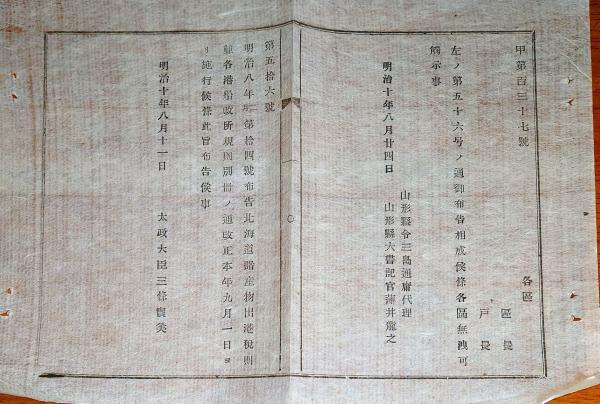 甲第百三十七號
各區
區長
戸長
左ノ第五十六号ノ通御布告相成候條各區無洩可
觸示事
明治十年八月廿四日
山形縣令三島通庸代理
山形縣大書記官薄井龍之
第五拾六號
明治八年 第拾四號布告北海道諸産物出港税則
並各港船改所規則別冊ノ通改正本年九月一日ヨ
リ施行候條此旨布告候事
明治十年八月十一日
太政大臣三條實美